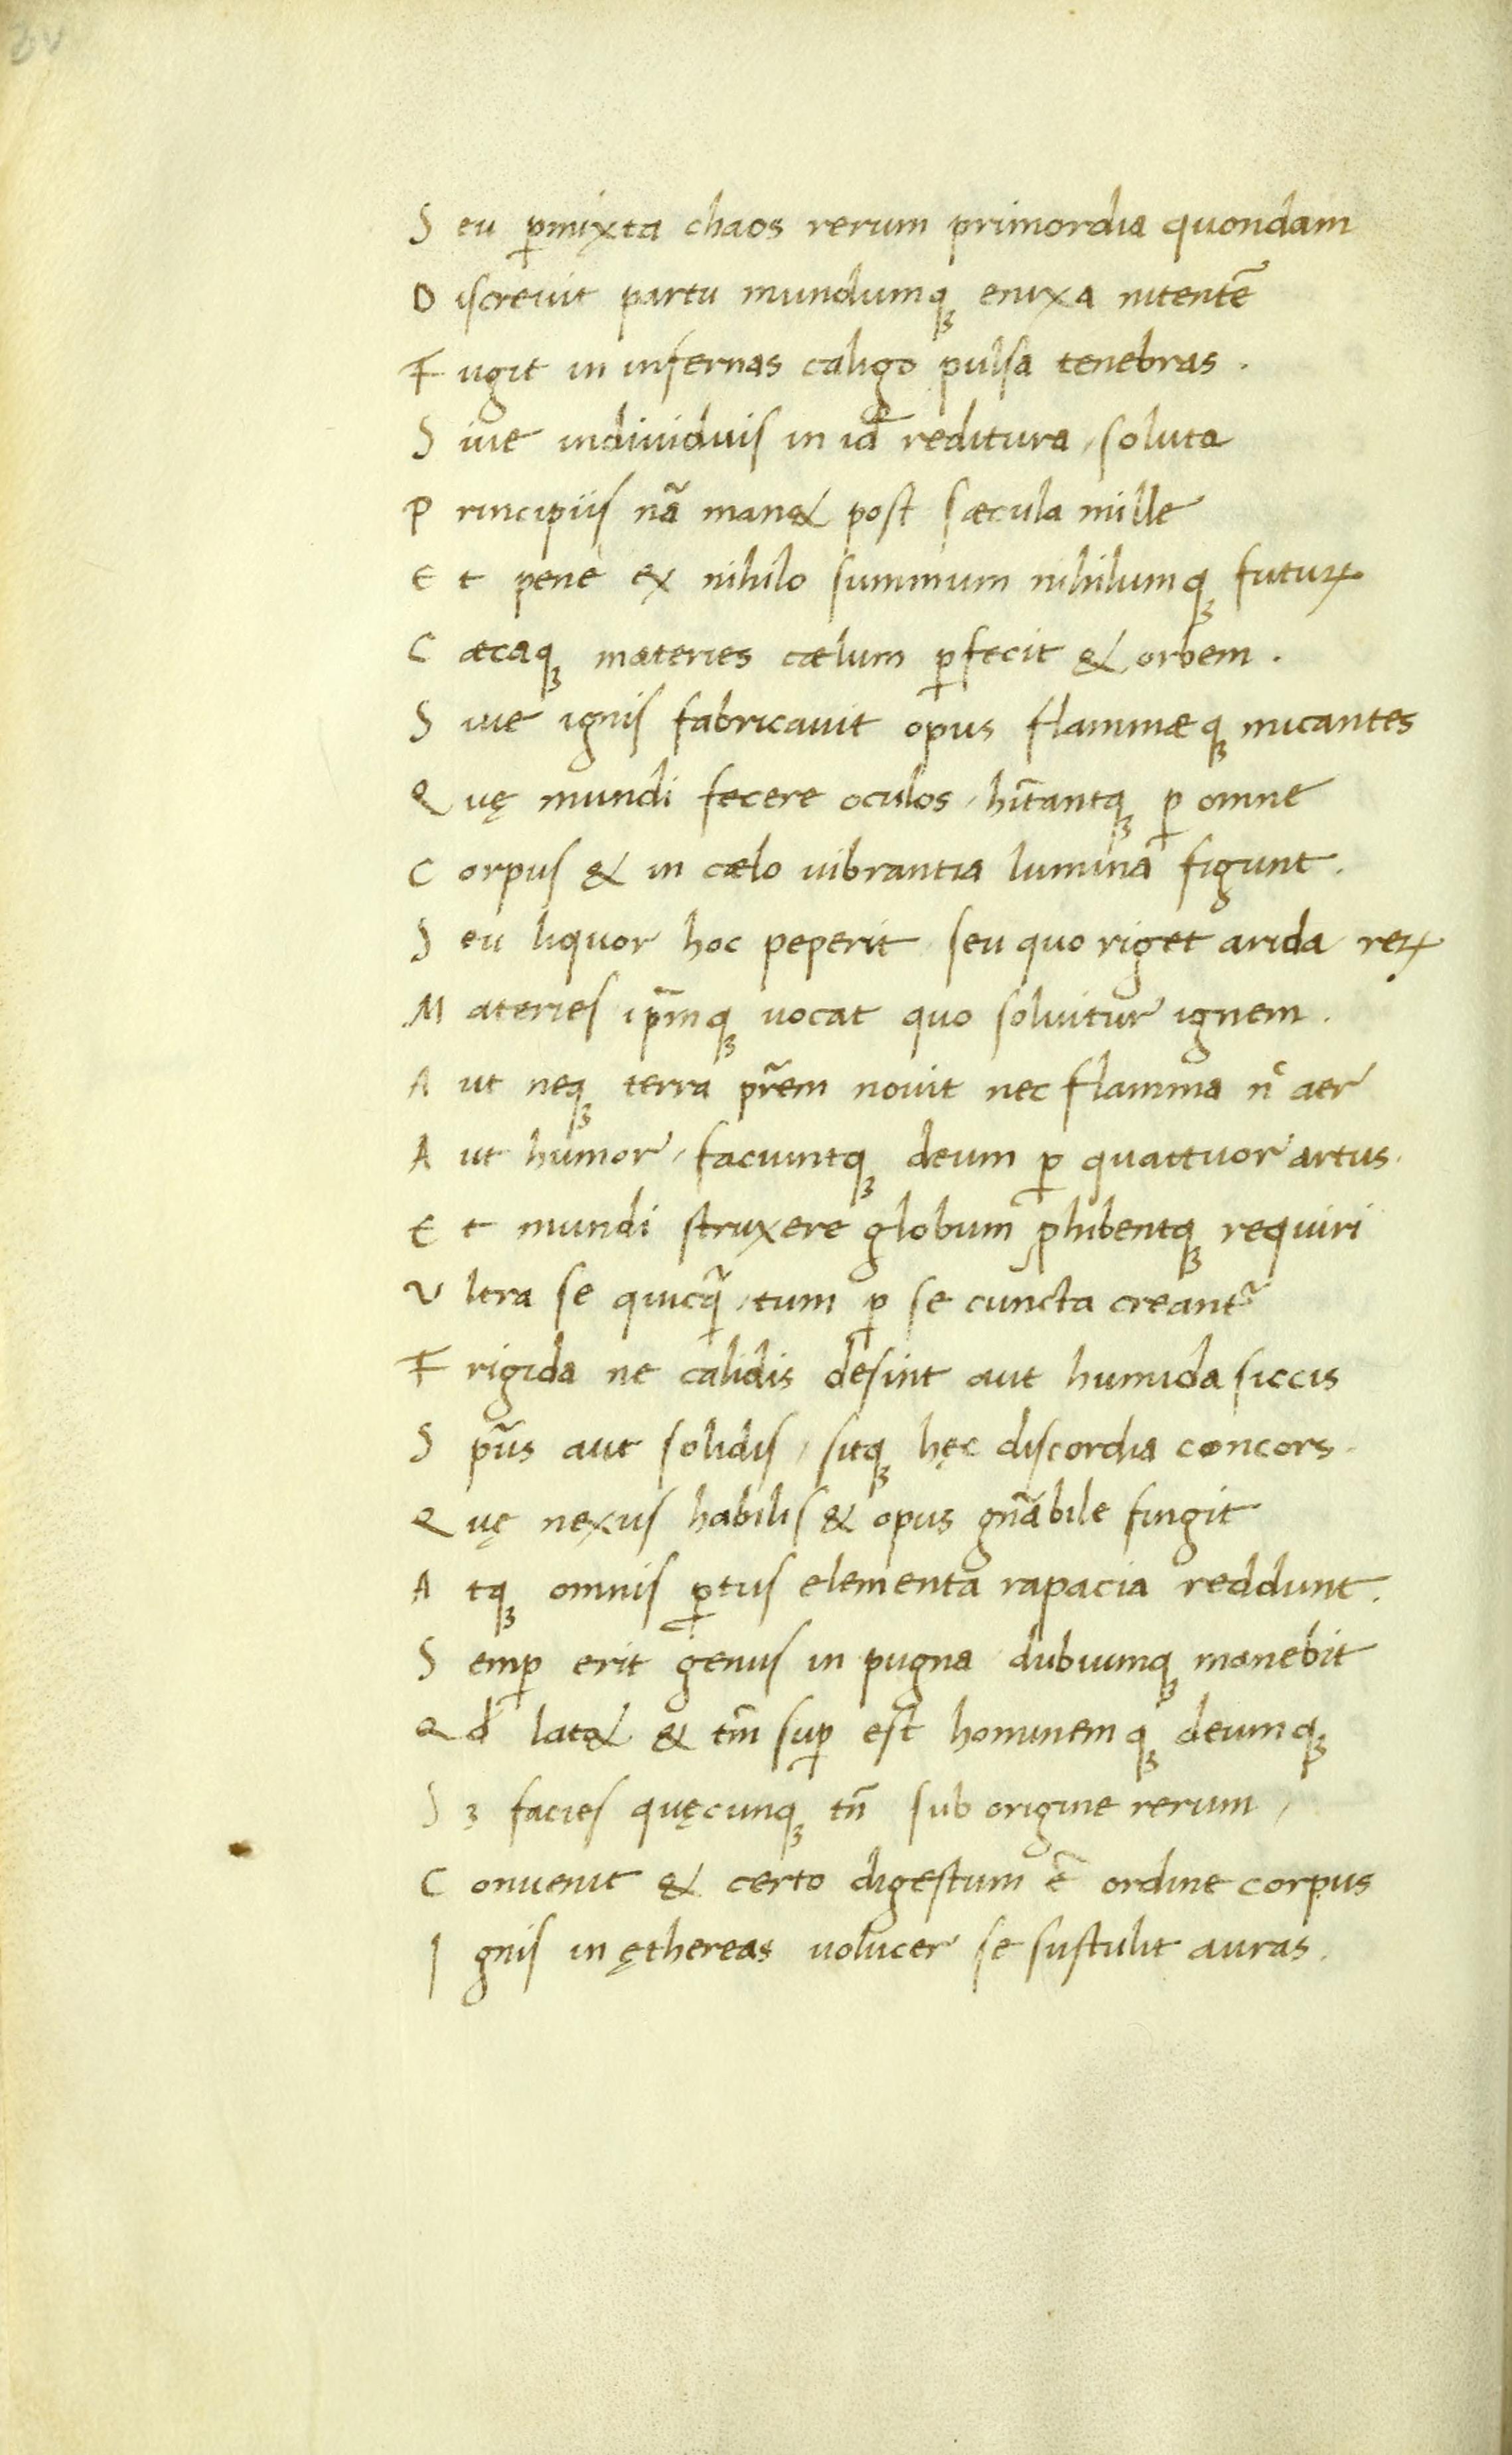 S eu ꝑmixta chaos rerum primordia quondam
D iscreuit partu mundumqꝫ enixa nitentē
F ugit in infernas caligo pulsa tenebras .
S iue indiuiduis in idē reditura / soluta
P rincipiis nā man& post sæcula mille
E t pene ex nihilo summum nihilumqꝫ futuꝝ
C æcaqꝫ materies cælum ꝑfecit & orbem .
S iue ignis fabricauit opus flammæqꝫ micantes
Q uę mundi fecere oculos / hītantqꝫ ꝑ omne
C orpus & in cælo uibrantia lumina figunt .
S eu liquor hoc peperit / seu quo riget arida reꝝ
M ateries ip̄mqꝫ uocat quo soluitur ignem .
A ut neqꝫ terra pr̄em nouit nec flamma nͨ aer
A ut humor / faciuntqꝫ deum ꝑ quattuor artus .
E t mundi struxere globum ꝓhibentqꝫ requiri
V ltra se quicq̄ / tum ꝑ se cuncta creantᷣ
F rigida ne calidis desint aut humida siccis
S pūs aut solidis / sitqꝫ hęc discordia concors .
Q uę nexus habilis & opus gn̄abile fingit
A tqꝫ omnis ꝑtus elementa rapacia reddunt .
S emꝑ erit genus in pugna dubiumqꝫ manebit
Q đ lat& & tm̄ suꝑ est hominemqꝫ deumqꝫ
S ꝫ facies quęcunqꝫ tn̄ sub origine rerum /
C onuenit & certo digestum ē ordine corpus
I gnis in ęthereas uolucer se sustulit auras .